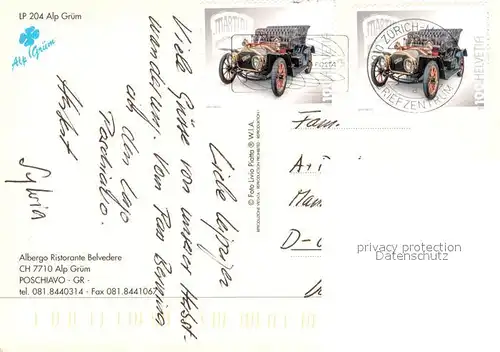 LP 204 Alp Grüm
Alp Grüm
Liebe
Viele Grüsse von unserer Herbst-
wanderung. Vom Pass Bernina
an den Lago
Poschiavo.
Herbert
Sylvia
Albergo Ristorante Belvedere
CH 7710 Alp Grüm
POSCHIAVO - GR -
tel. 081.8440314 - Fax 081.8441067
© Foto Livio Piatta ® W.I.A.
RIPRODUZIONE VIETATA - REPRODUCTION PROHIBITED - REPRODUKTION
MARTINI
POSTA
100 HELVETIA
ZÜRICH-M
BRIEFZENTRUM
100 HELVETIA
Fam.
D-
privacy protection
Datenschutz